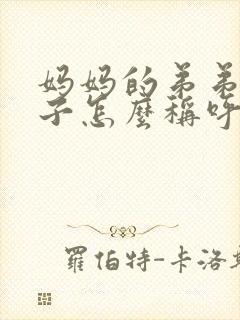 妈妈的弟弟
子怎麼稱呼
羅伯特-卡洛斯